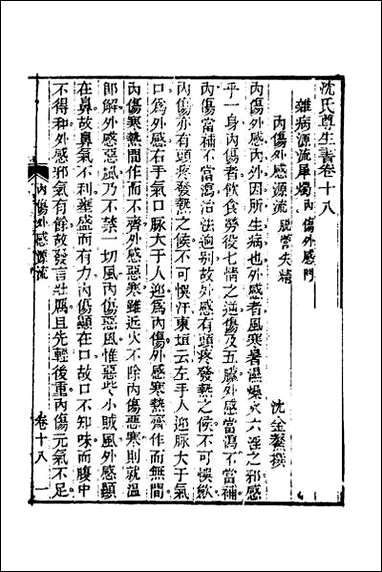 沈氏尊生書卷十八
雜病源流犀燭 內傷外感門
沈金鰲撰
內傷外感源流 脫營失精
內傷外感內外因所生病也外感者風寒暑濕燥火六淫之邪感
乎一身內傷者飲食勞役七情之逆傷及五臟外感當瀉不當補
內傷當補不當瀉治法迥別故外感有頭疼發熱之候不可悞飲
內傷亦有頭疼發熱之候不可悞汗東垣云左手人迎脉大于氣
口爲外感右手氣口脉大于人迎爲內傷外感寒熱齊作而無間
內傷寒熱間作而不齊外感惡寒雖近火不除內傷惡寒則就溫
卽解外感惡風乃不禁一切風內傷惡風惟惡此小賊風外感顯
在鼻故鼻氣不利壅盛而有力內傷顯在口故口不知味而腹中
不得和外感邪氣有餘故發言壯厲且先輕後重內傷元氣不足
內傷外感源流
卷十八
一